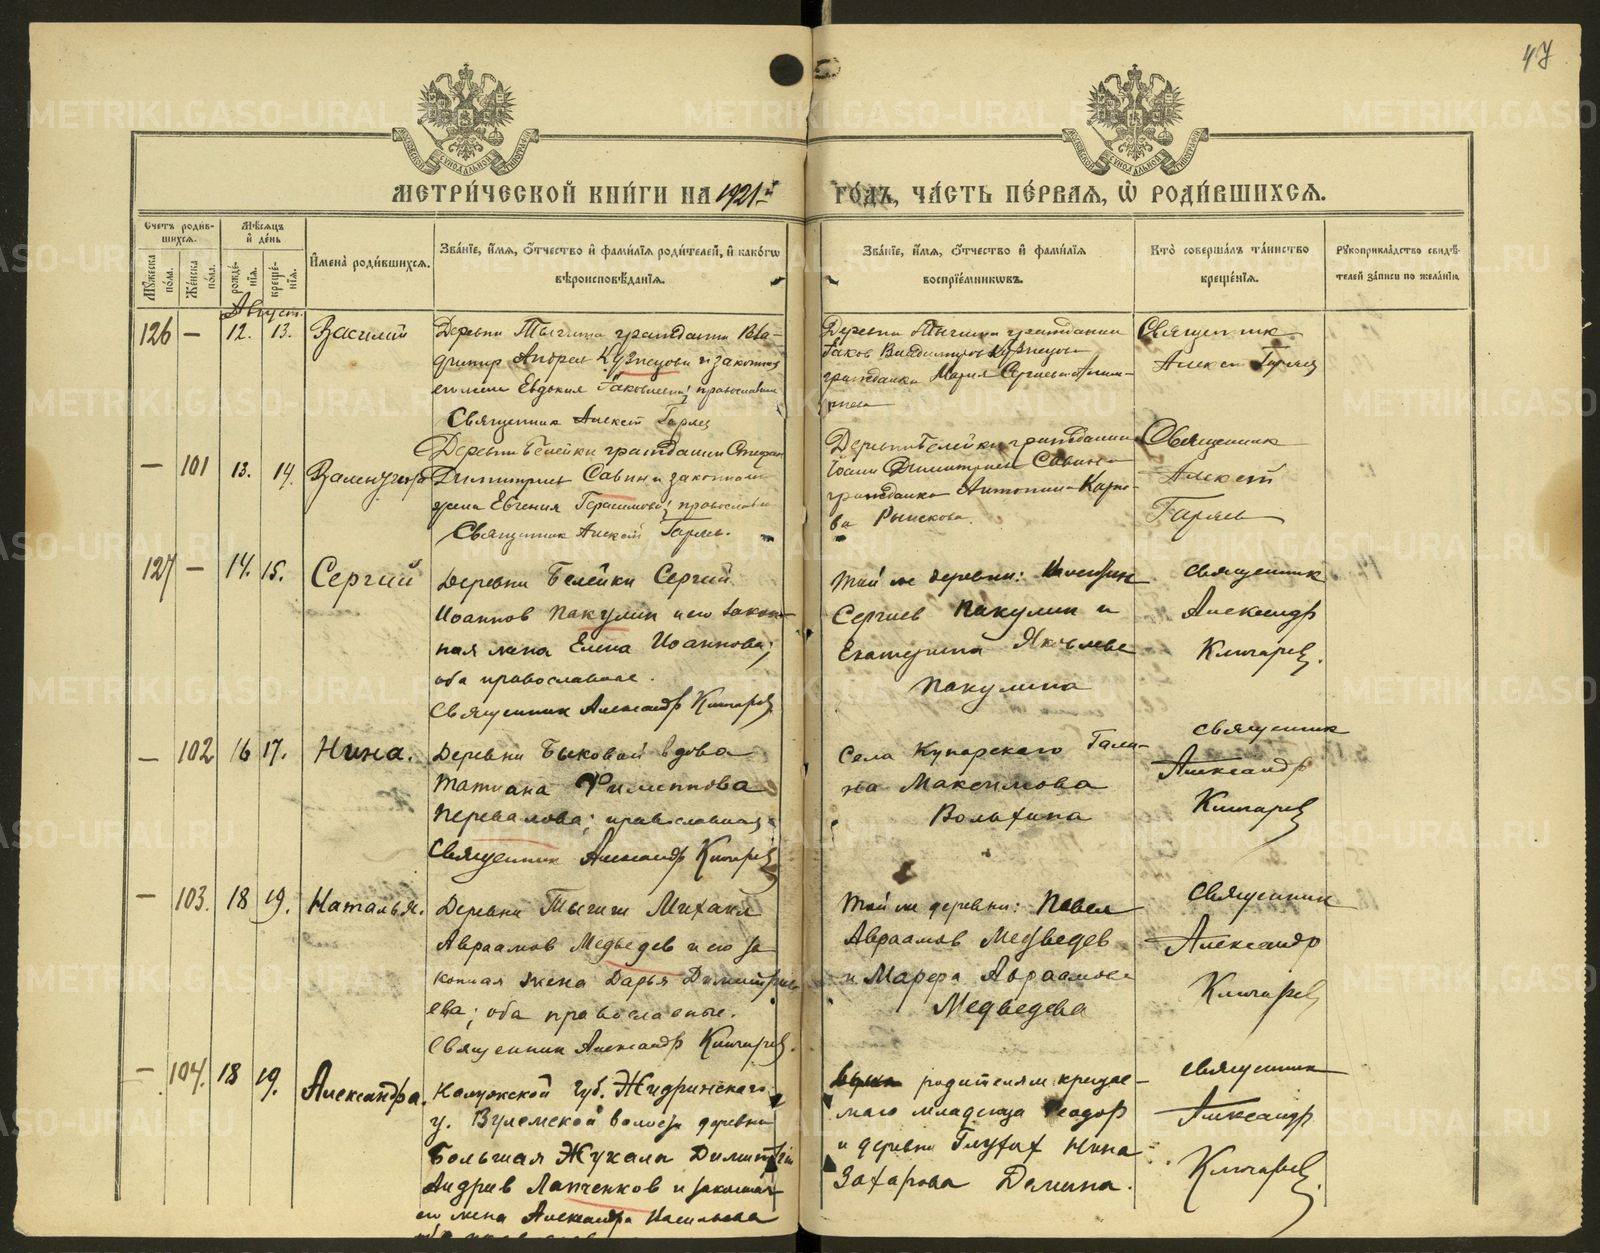 47
МЕТРИ́ЧЕСКОЙ КНИ́ГИ НА 1921й ГО́ДЪ, ЧА́СТЬ ПЕ́РВАЯ, Ѡ РОДИ́ВШИХСЯ.
Счетъ роди́вшихся.
Му́жеска по́ла.
Же́нска по́ла.
Мѣ́сяцъ и҆ де́нь
рожде́нїя.
креще́нїя.
И҆мена̀ роди́вшихся.
Зва́нїе, и҆́мя, ѻ҆́тчество и҆ фами́лїя роди́телей, и҆ како́гѡ вѣроисповѣ́данїя.
Зва́нїе, и҆́мя, ѻ҆́тчество и҆ фами́лїя воспрїе́мникѡвъ.
Кто̀ соверша́лъ та́инство креще́нїя.
Рукоприкла́дство свидѣ́телей за́писи по жела́нїю.
Август.
126 — 12. 13. Василий
Деревни
Андреев Кузнецов и законная
его жена Евдокия Яковлева; православные
Священник Алексей
Деревни гражданин
Яков Владимиров Кузнецов
гражданка Мария Сергиева
Священник
Алексей
— 101 13. 14. Валентина
Деревни Белейки гражданин Стефан
Димитриев Савин и законная
жена Евгения Герасимова; православные
Священник Алексей
Деревни Белейки гражданин
Иоанн Димитриев Савин
гражданка Антонина
Священник
Алексей
127 — 14. 15. Сергий
Деревни Белейки Сергий
Иоаннов Пакулин и его закон-
ная жена Елена Иоаннова;
оба православные.
Священник Александр Ключарев
Той же деревни:
Сергиев Пакулин и
Екатерина Яковлева
Пакулина
священник
Александр
Ключарев.
— 102 16 17. Нина.
Деревни Быковой вдова
Татиана Филиппова
Перевалова; православная
Священник Александр Ключарев
Села Кунарского Гали-
на Максимова
Вольхина
священник
Александр
Ключарев
— 103. 18 19. Наталья.
Деревни Михаил
Авраамов Медведев и его за
конная жена Дарья Димитри
ева; оба православные.
Священник Александр Ключарев.
Той же деревни: Павел
Авраамов Медведев
и Марфа Авраамова
Медведева
священник
Александр
Ключарев
— 104. 18 19. Александра.
Калужской губ. Жидринского
у. волости деревни
Большая Димитрий
Андрив Лапченков и законная
его жена Александра
родителям крещае-
мого младенца Феодор
и деревни Глухих Нина
Захарова Демина.
священник
Александр
Ключарев.
METRIKI.GASO-URAL.RU